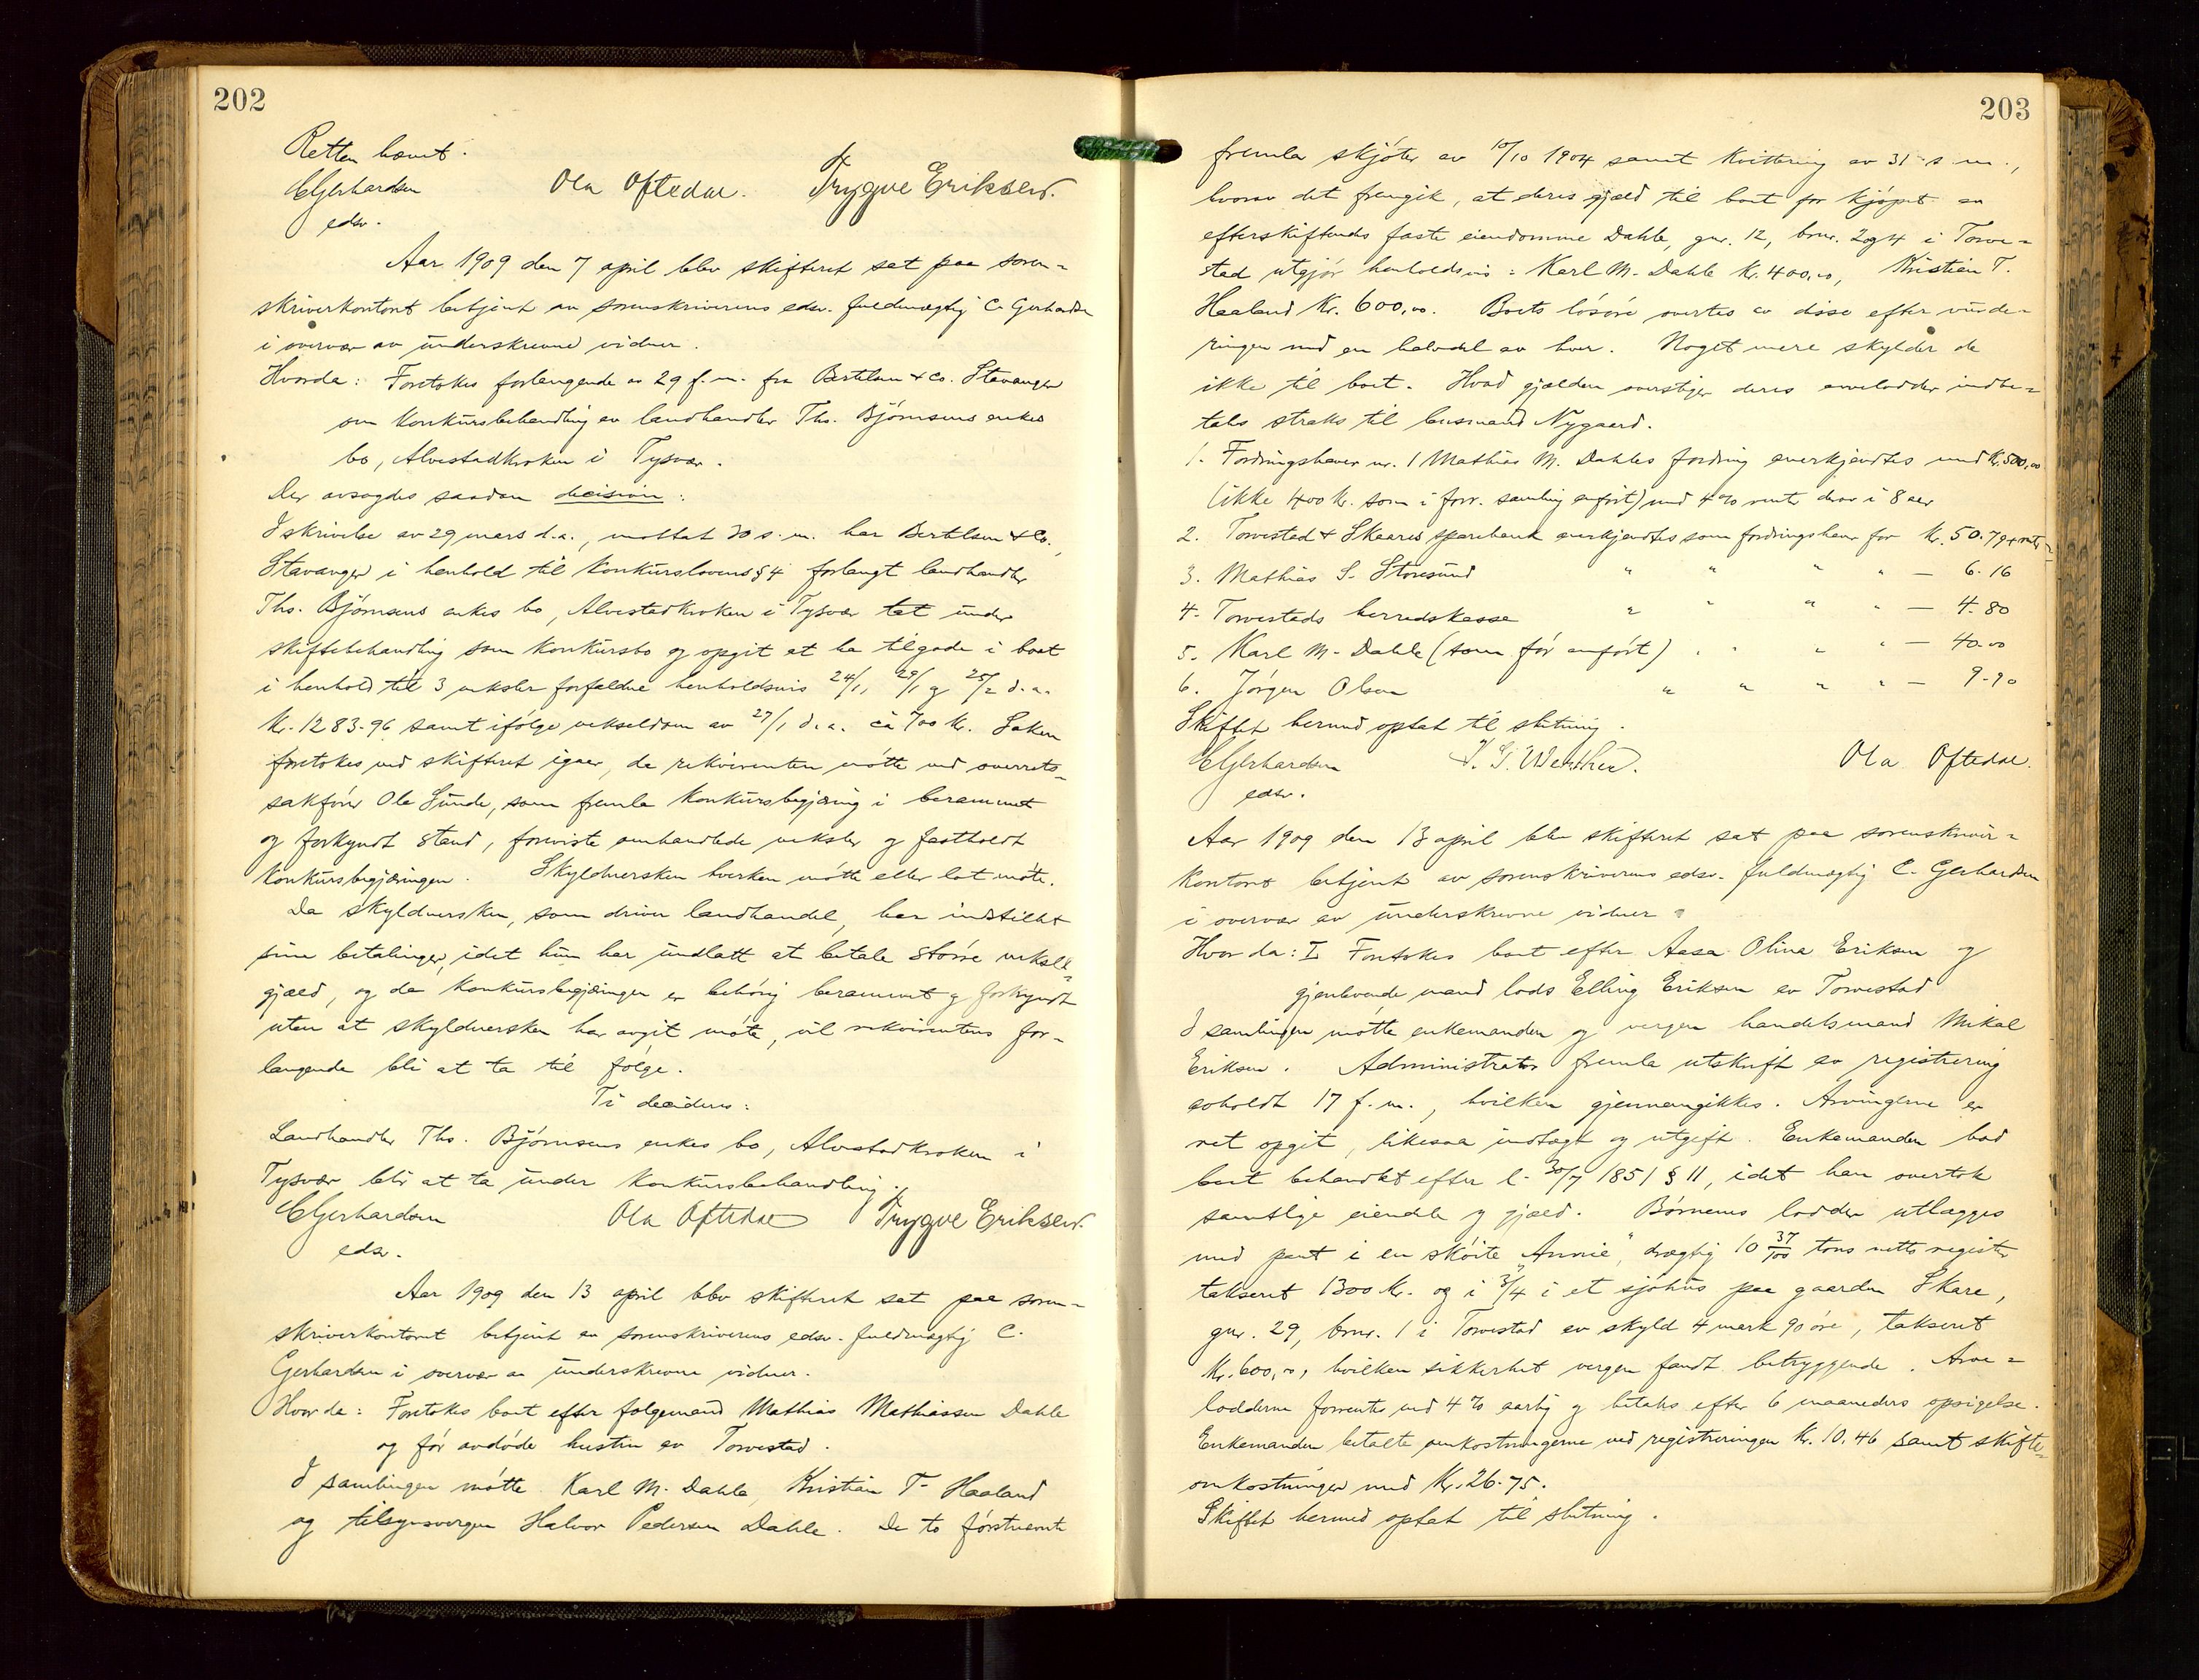 202
Retten hævet.
CGerhardsen Ola Oftedal. Trygve Eriksen.
edsv.
Aar 1909 den 7 april blev skifteret sat paa soren=
skriverkontoret betjent av sorenskriverens edsv. fuldmægtig C. Gerhardsen
i overvær av underskrevne vidner.
Hvorda: Foretokes forlangende av 29 f.m. fra Bertelsen & Co. Stavanger
om konkursbehandling av landhandler Ths. Bjørnsens enkes
bo, Alvestadkroken i Tysvær.
Der avsagdes saadan decision:
I skrivelse av 29 mars d.a., mottat 30 s.m. har Bertelsen & Co.,
Stavanger i henhold til konkurslovens § 4 forlangt landhandler
Ths. Bjørnsens enkes bo, Alvestadkroken i Tysvær tat under
skiftebehandling som konkursbo og opgit at ha tilgode i boet
i henhold til 3 veksler forfaldne henholdsvis 24/1, 29/1 og 25/2 d.a.
Kr. 1283.96 samt ifølge vekseldom av 27/1 d.a. ca 700 kr. Saken
foretokes ved skifteret igaar, da rekvirenten møtte ved overrets=
sakfører Ole Sunde, som fremla konkursbegjæring i berammet
og forkyndt stand, foreviste omhandlede veksler og fastholdt
konkursbegjæringen. Skyldnersken hverken møtte eller lot møte.
Da skyldnersken, som driver landhandel, har indstillet
sine betalinger, idet hun har undlatt at betale større veksel=
gjæld, og da konkursbegjæringen er behørig berammet og forkyndt
uten at skyldnersken har avgit møte, vil rekvirentens for=
langende bli at ta til følge.
Ti decideres:
Landhandler Ths. Bjørnsens enkes bo, Alvestadkroken i
Tysvær blir at ta under konkursbehandling.
CGerhardsen Ola Oftedal Trygve Eriksen.
edsv.
Aar 1909 den 13 april blev skifteret sat paa soren=
skriverkontoret betjent av sorenskriverens edsv. fuldmægtig C.
Gerhardsen i overvær av underskrevne vidner.
Hvorda: Foretokes boet efter følgemand Mathias Mathiassen Dahle
og før avdøde hustru av Torvestad.
I samlingen møtte Karl M. Dahle, Kristian T. Haaland
og tilsynsvergen Halvor Pedersen Dahle. De to førstnævnte
203
fremla skjøter av 10/10 1904 samt kvittering av 31 s.m.,
hvorav det fremgik, at deres gjæld til boet for kjøpet av
efterskiftendes faste eiendomme Dahle, gnr. 12, bnr. 2 og 4 i Torve=
stad utgjør henholdsvis: Karl M. Dahle Kr. 400,00, Kristian T.
Haaland Kr. 600,00. Boets løsøre overtes av disse efter vurde=
ringen med en halvdel av hver. Noget mere skylder de
ikke til boet. Hvad gjælden overstiger deres arvelodder indbe=
tales straks til lensmand Nygaard.
1. Fordringshaver nr. 1 Mathias M. Dahles fordring anerkjendtes med Kr. 500,00
(ikke 400 kr. som i forr. samling anført) med 4% rente derav i 8 aar
2. Torvestad & Skaares sparebank anerkjendtes som fordringshaver for Kr. 50.79 + rente
3. Mathias S. Storesund " " " " — 6.16
4. Torvestads herredskasse " " " " — 4.80
5. Karl M. Dahle (som før anført) " " " " — 40.00
6. Jørgen Olsen " " " " — 9.90
Skiftet hermed optat til slutning.
CGerhardsen Ola Oftedal.
edsv.
Aar 1909 den 13 april blev skifteret sat paa sorenskriver=
kontoret betjent av sorenskriverens edsv. fuldmægtig C. Gerhardsen
i overvær av underskrevne vidner
Hvorda: I Foretokes boet efter Aasa Olina Eriksen og
gjenlevende mand lods Elling Eriksen av Torvestad
I samlingen møtte enkemanden og vergen handelsmand Mikal
Eriksen. Administrator fremla utskrift av registrering
avholdt 17 f.m., hvilken gjennemgikkes. Arvingerne er
ret opgit, likesaa indtægt og utgift. Enkemanden bad
boet behandlet efter l. 30/7 1851 § 11, idet han overtok
samtlige eiendele og gjæld. Børnenes lodder utlægges
med pant i en skøite "Annie", drægtig 10 37/100 tons netto register
takseret 1300 kr. og i 3/4 i et sjøhus paa gaarden Skare,
gnr. 29, bnr. 1 i Torvestad av skyld 4 mark 90 øre, takseret
Kr. 600,00, hvilken sikkerhet vergen fandt betryggende. Arve=
lodderne forrentes med 4% aarlig og betales efter 6 maaneders opsigelse.
Enkemanden betalte omkostningerne ved registreringen Kr. 10.46 samt skifte=
omkostninger med Kr. 26.75.
Skiftet hermed optat til slutning.